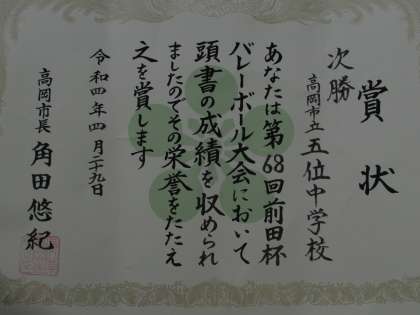 賞状
次勝
高岡市立五位中学校
あなたは第68回前田杯
バレーボール大会において
頭書の成績を収められ
ましたのでその栄誉をたたえ
之を賞します
令和四年四月二十九日
高岡市長 角田悠紀